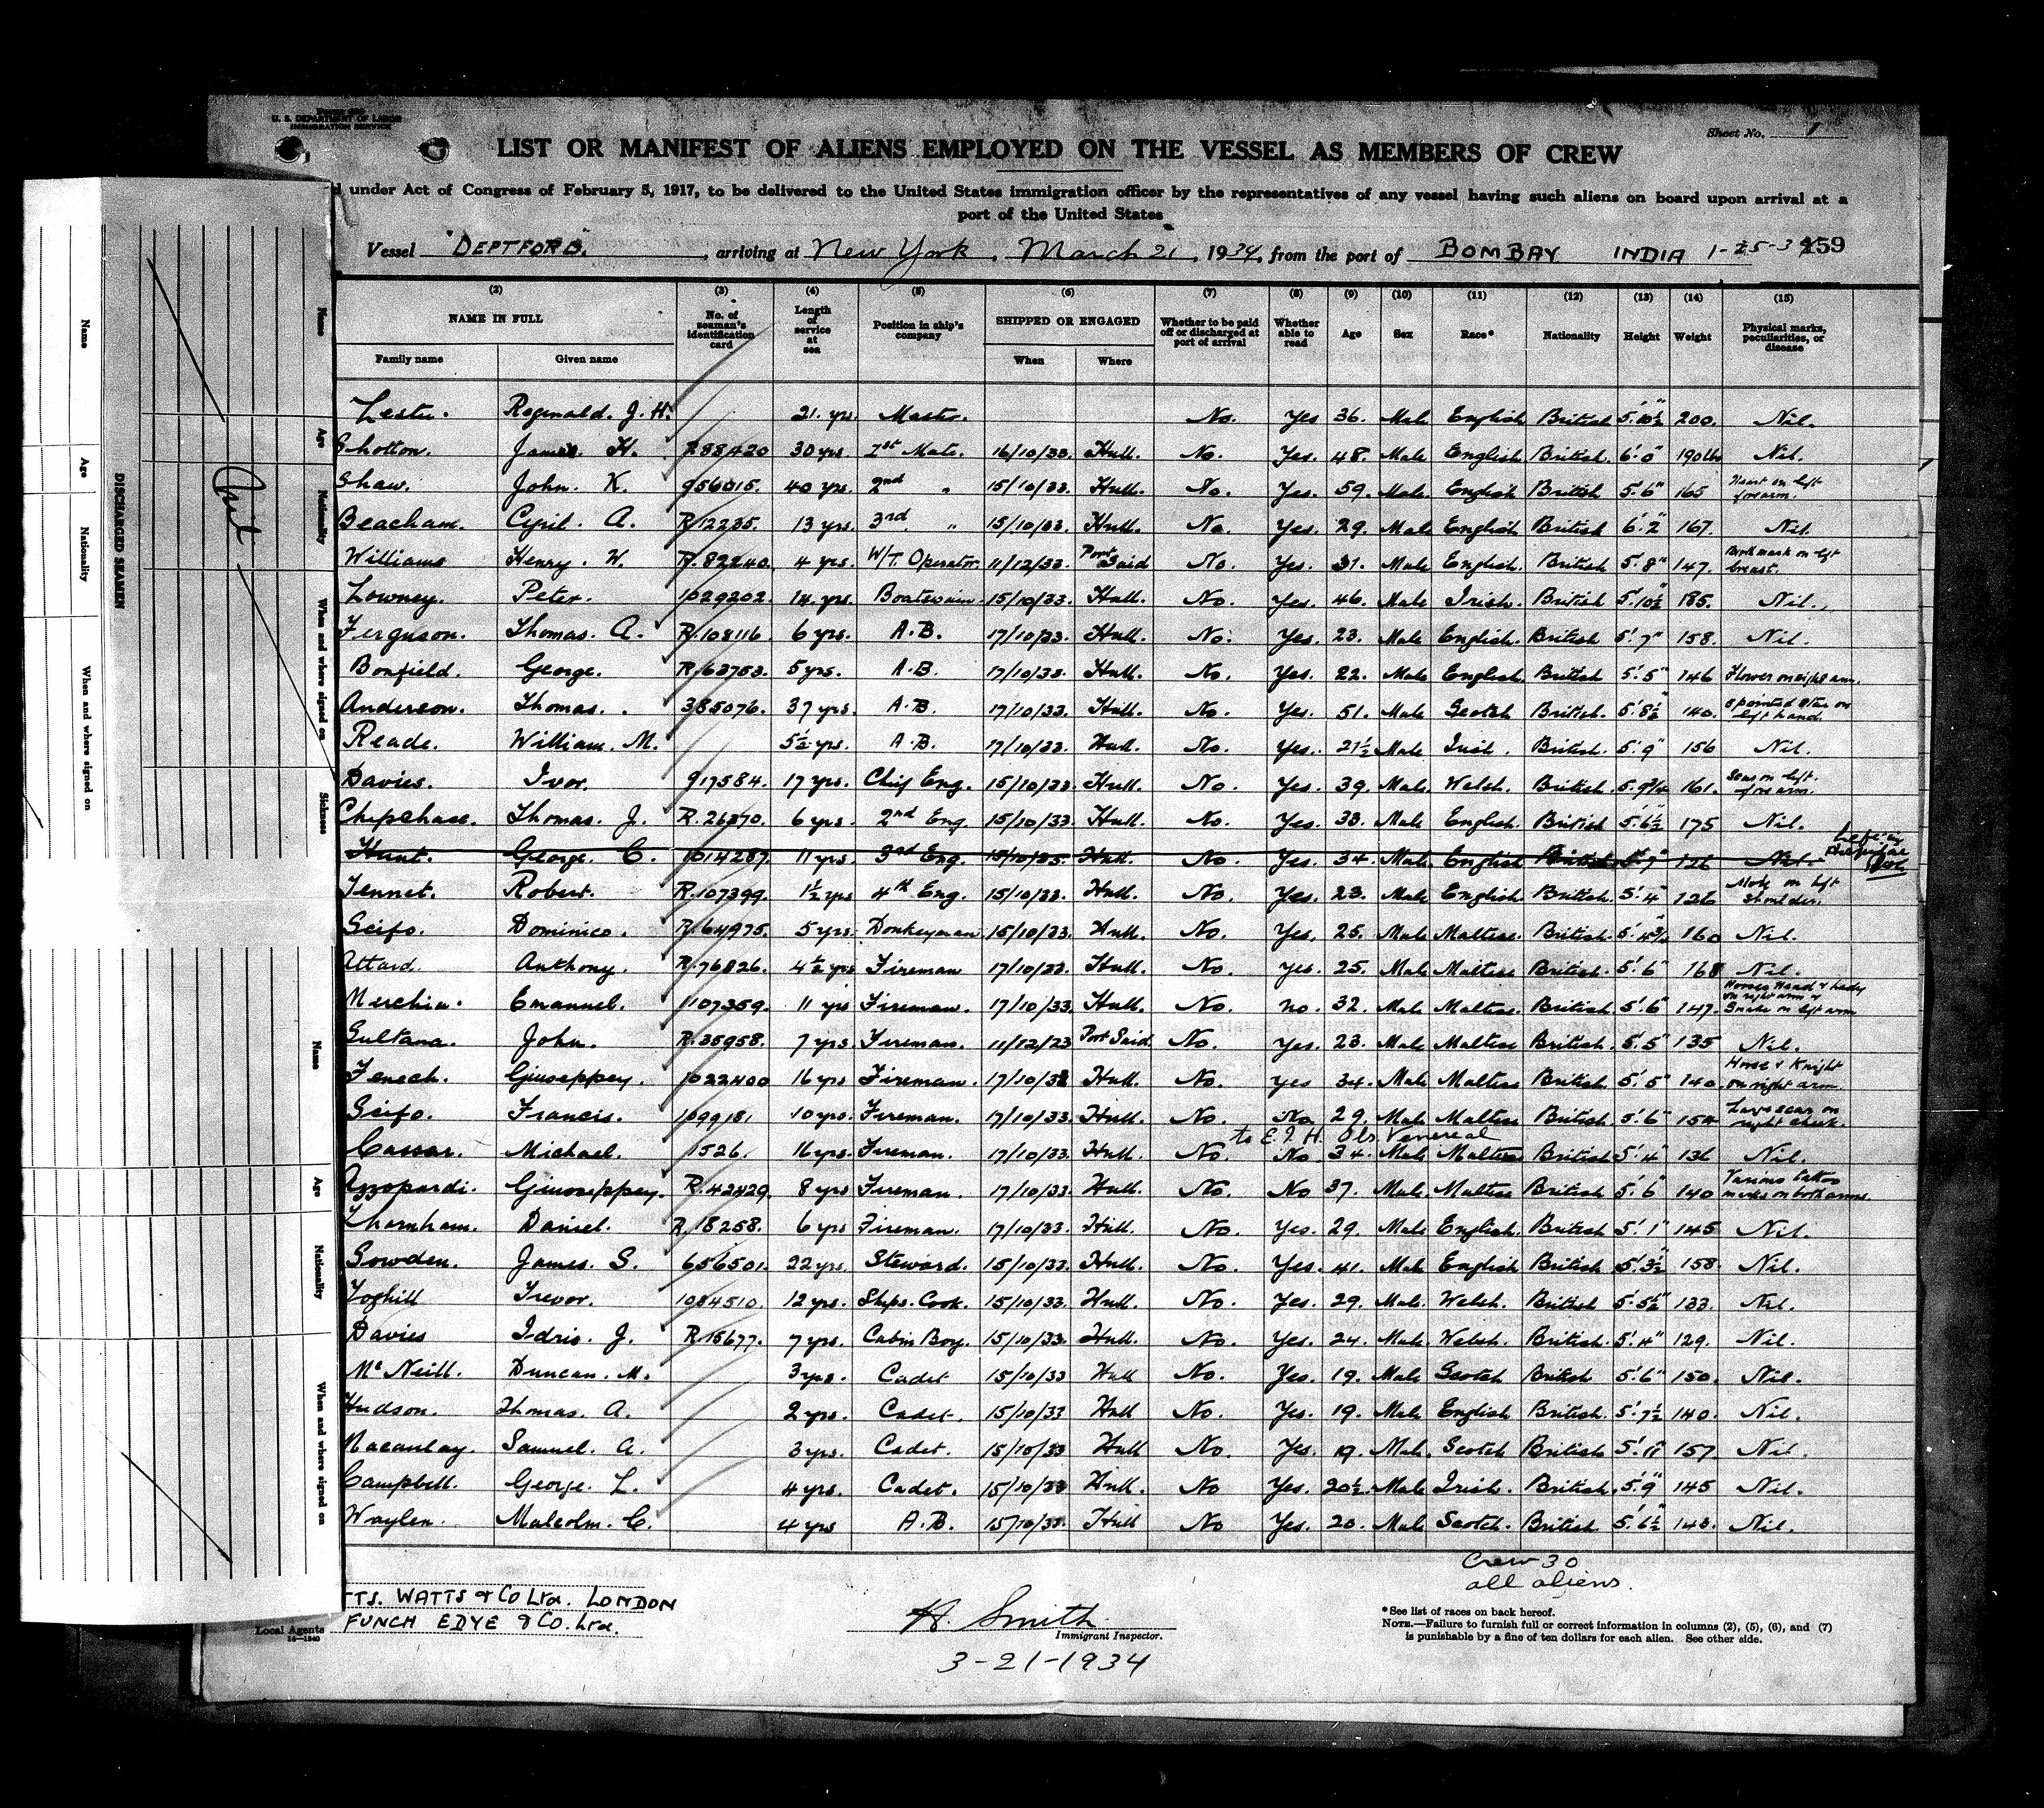 U. S. DEPARTMENT OF LABOR
IMMIGRATION SERVICE
Sheet No. 1
LIST OR MANIFEST OF ALIENS EMPLOYED ON THE VESSEL AS MEMBERS OF CREW
under Act of Congress of February 5, 1917, to be delivered to the United States immigration officer by the representatives of any vessel having such aliens on board upon arrival at a
port of the United States
Vessel "DEPTFORD", arriving at New York, March 21, 1934, from the port of BOMBAY INDIA 1-25-34 159
(2) (3) (4) (5) (6) (7) (8) (9) (10) (11) (12) (13) (14) (15)
NAME IN FULL No. of seaman's identification card Length of service at sea Position in ship's company SHIPPED OR ENGAGED Whether to be paid off or discharged at port of arrival Whether able to read Age Sex Race* Nationality Height Weight Physical marks, peculiarities, or disease
Family name Given name When Where
Lester. Reginald. J. H. 21. yrs. Master. No. Yes 36. Male English British 5'.10½" 200. Nil.
Shotton. James H. 288420 30 yrs 1st Mate. 16/10/33. Hull. No. Yes. 48. Male English British. 6'.0" 190lbs Nil.
Shaw. John. K. 956015. 40 yrs. 2nd " 15/10/33. Hull. No. Yes. 59. Male. English British 5'.6" 165 Heart on left forearm.
Beacham. Cyril. A. R.12235. 13 yrs. 3rd " 15/10/33. Hull. No. Yes. 29. Male English British 6'.2" 167. Nil.
Williams Henry. W. R.82240. 4 yrs. W/T. Operator. 11/12/33. Port Said No. Yes. 31. Male English. British 5'.8" 147. Birth mark on left breast.
Lowney. Peter. 1029202. 14 yrs. Boatswain. 15/10/33. Hull. No. Yes. 46. Male Irish. British 5'.10½" 185. Nil.
Ferguson. Thomas. A. R.108116. 6 yrs. A.B. 17/10/33. Hull. No. Yes. 23. Male English. British 5'.7" 158. Nil.
Bonfield. George. R.63753. 5 yrs. A.B. 17/10/33. Hull. No. Yes. 22. Male English British 5'.5" 146 Flower on right arm.
Anderson. Thomas. 385076. 37 yrs. A.B. 17/10/33. Hull. No. Yes. 51. Male Scotch British. 5'.8½" 140. pointed star on left hand.
Reade. William. M. 5½ yrs. A.B. 17/10/33. Hull. No. Yes. 21½ Male Irish. British. 5'.9" 156 Nil.
Davies. Ivor. 917584. 17 yrs. Chief Eng. 15/10/33. Hull. No. Yes. 39. Male. Welsh. British. 5.9¾ 161. Scar on left forearm.
Chipchase. Thomas. J. R.26370. 6 yrs. 2nd Eng. 15/10/33. Hull. No. Yes. 33. Male English. British 5'.6½" 175 Nil.
Hunt. George. C. 1014287. 11 yrs. 3rd Eng. 15/10/33. Hull. No. Yes. 34. Male. English British 5'.7" 126 Nil. Left in Hospital
Tennet. Robert. R.107399. 1½ yrs 4th Eng. 15/10/33. Hull. No. Yes. 23. Male English. British 5'.4" 126 Mole on left shoulder.
Scifo. Dominico. R.64975. 5 yrs. Donkeyman 15/10/33. Hull. No. Yes. 25. Male Maltese. British. 5'.4¾ 160 Nil.
Attard. Anthony. R.76826. 4½ yrs Fireman 17/10/33. Hull. No. Yes. 25. Male Maltese British. 5'.6" 168 Nil.
Merchia. Emanuel. 1107359. 11 yrs Fireman. 17/10/33. Hull. No. no. 32. Male Maltese British. 5'.6" 147. Horses Head & Lady on right arm & Snake on left arm
Sultana. John. R.35958. 7 yrs Fireman. 11/12/33 Port Said. No. Yes. 23. Male Maltese British. 5'.5" 135 Nil.
Fenech. Giuseppey. 1022400 16 yrs Fireman. 17/10/33 Hull. No. Yes 34. Male Maltese British. 5'.5" 140. Horse & Knight on right arm.
Scifo. Francis. 1099181 10 yrs. Fireman. 17/10/33. Hull. No. No. 29. Male Maltese British 5'.6" 154 Large scar on right cheek.
to E.I.H. Obs Venereal
Cassar. Michael. 1526. 16 yrs. Fireman. 17/10/33. Hull. No. No 34. Male Maltese British 5'.4" 136 Nil.
Azzopardi. Giuseppey. R.42429. 8 yrs Fireman. 17/10/33. Hull. No. No 37. Male. Maltese British 5'.6" 140 Various tattoo marks on both arms
Thornham. Daniel. R.18258. 6 yrs Fireman. 17/10/33. Hull. No. Yes. 29. Male English. British 5'.1" 145. Nil.
Sowden. James. S. 656501. 22 yrs. Steward. 15/10/33. Hull. No. Yes. 41. Male English British 5'.3½" 158. Nil.
Toghill Trevor. 1084510. 12 yrs. Ships. Cook. 15/10/33. Hull. No. Yes. 29. Male. Welsh. British 5'.5½" 133. Nil.
Davies Idris. J. R.15677. 7 yrs. Cabin Boy. 15/10/33. Hull. No. Yes. 24. Male. Welsh British. 5'.4" 129. Nil.
Mc Neill. Duncan. M. 3 yrs. Cadet 15/10/33 Hull No. Yes. 19. Male Scotch British 5'.6" 150. Nil.
Hudson. Thomas. A. 2 yrs. Cadet. 15/10/33 Hull No. Yes. 19. Male English British. 5'.7½ 140. Nil.
Macaulay. Samuel. A. 3 yrs. Cadet. 15/10/33 Hull No. Yes. 19. Male. Scotch British 5'.11" 157. Nil.
Campbell. George. L. 4 yrs. Cadet. 15/10/33 Hull. No Yes. 20½. Male Irish. British. 5'.9" 145 Nil.
Waylen. Malcolm. C. 4 yrs A.B. 15/10/33. Hull No Yes. 20. Male Scotch. British. 5'.6½" 143. Nil.
Crew 30
all aliens.
TTS. WATTS & Co Ltd. LONDON
Local Agents FUNCH EDYE & Co. Ltd.
14—1240
H. Smith
Immigrant Inspector.
3-21-1934
*See list of races on back hereof.
NOTE.—Failure to furnish full or correct information in columns (2), (5), (6), and (7)
is punishable by a fine of ten dollars for each alien. See other side.
DISCHARGED SEAMEN
Name
Age
Nationality
When and where signed on
Name
Age
Nationality
When and where signed on
Sickness
Nil
Name
Age
Nationality
When and where signed on